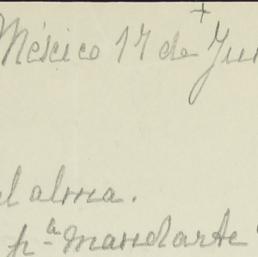 +
México 17 de Jun
el alma.
pª mandarte